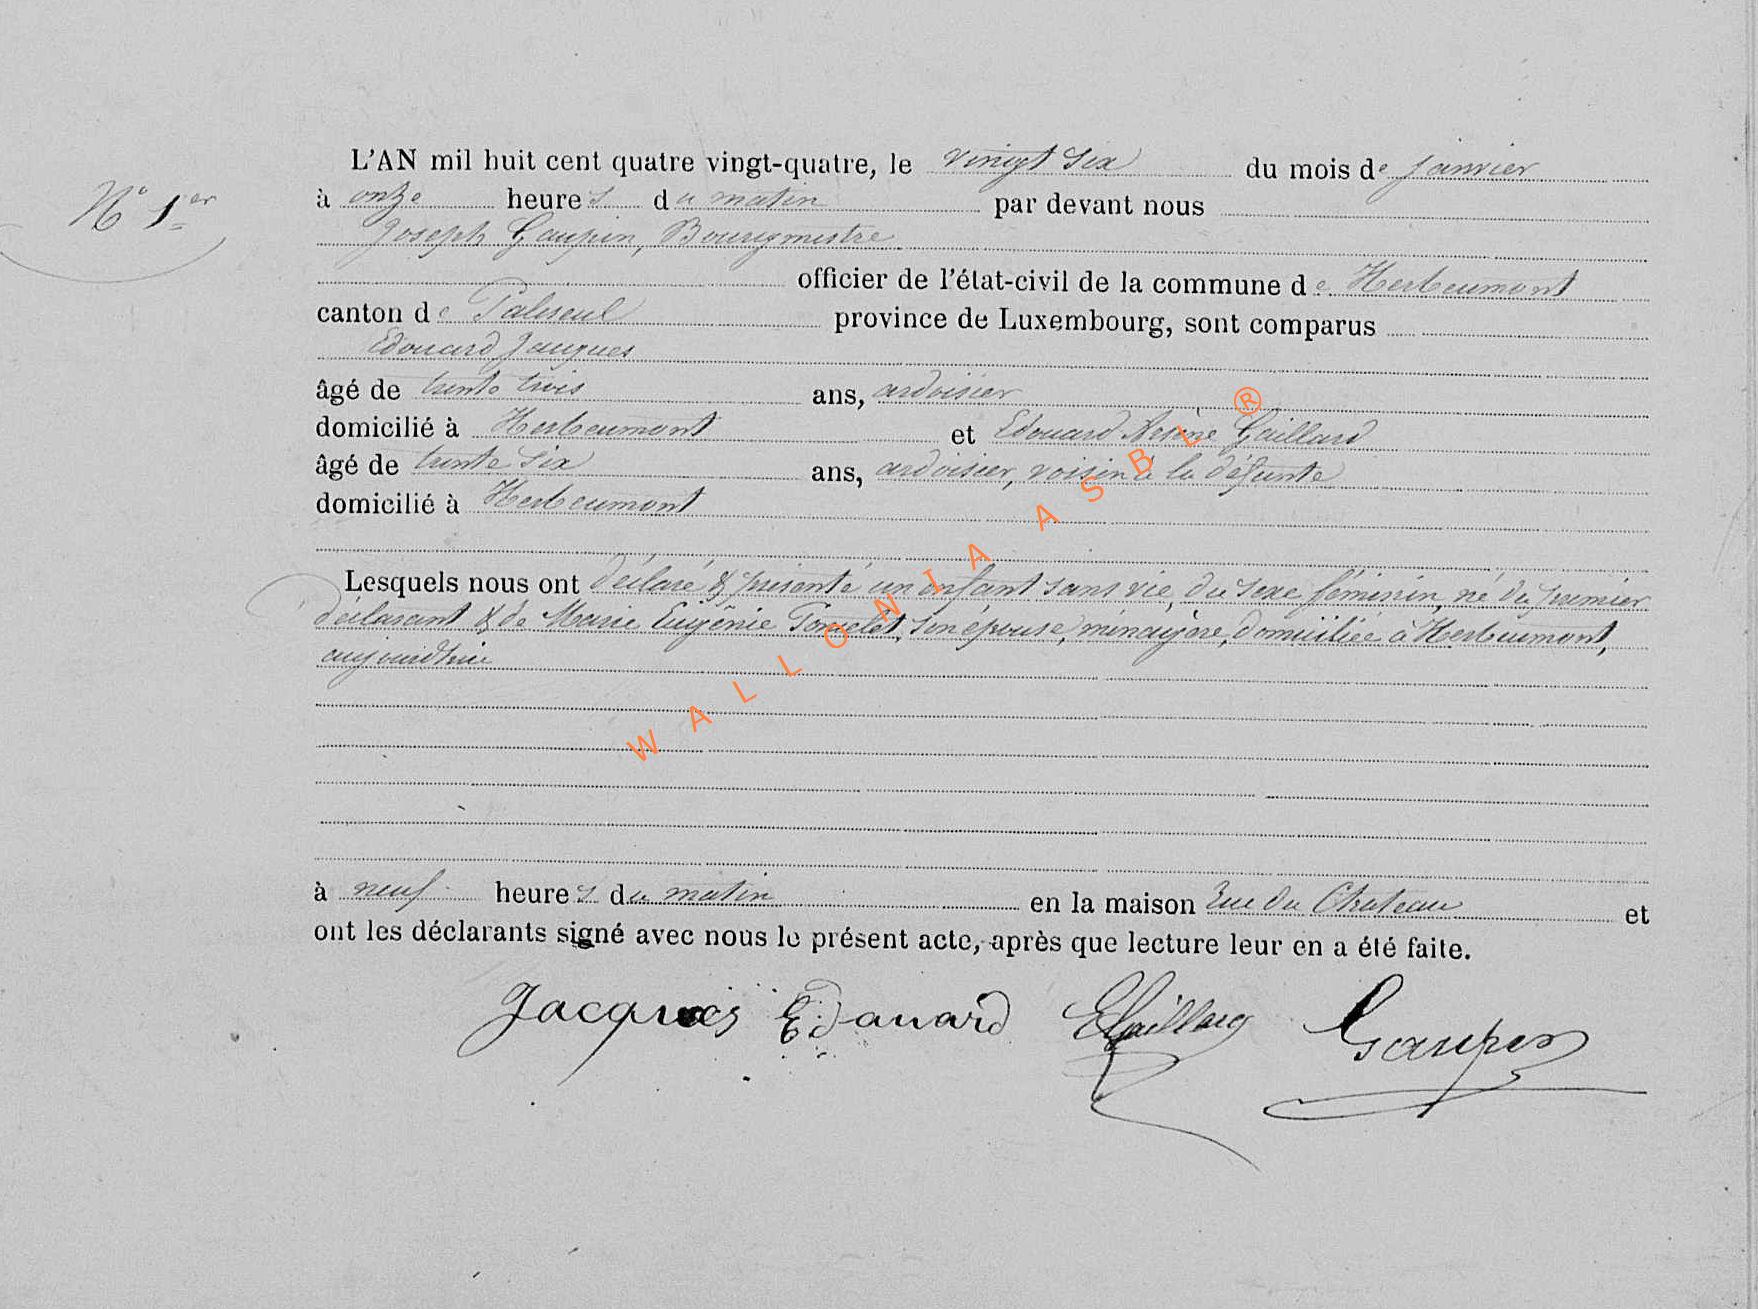 N° 1er
L'AN mil huit cent quatre vingt-quatre, le vingt six du mois de janvier
à onze heures du matin par devant nous
Joseph Gaupin, Bourgmestre
officier de l'état-civil de la commune de Herbeumont
canton de Paliseul province de Luxembourg, sont comparus
Edouard Jacques
âgé de trente trois ans, ardoisier
domicilié à Herbeumont et Edouard Arsène Gaillard
âgé de trente six ans, ardoisier, voisin à la défunte
domicilié à Herbeumont
Lesquels nous ont déclaré & présenté un enfant sans vie, du sexe féminin, né du premier
déclarant & de Marie Eugénie Poncelet, son épouse, ménagère, domiciliée à Herbeumont,
aujourd'hui
à neuf heures du matin en la maison rue du Chateau et
ont les déclarants signé avec nous le présent acte, après que lecture leur en a été faite.
Jacques Edouard EGaillard Gaupin
WALLONIA ASBL ®